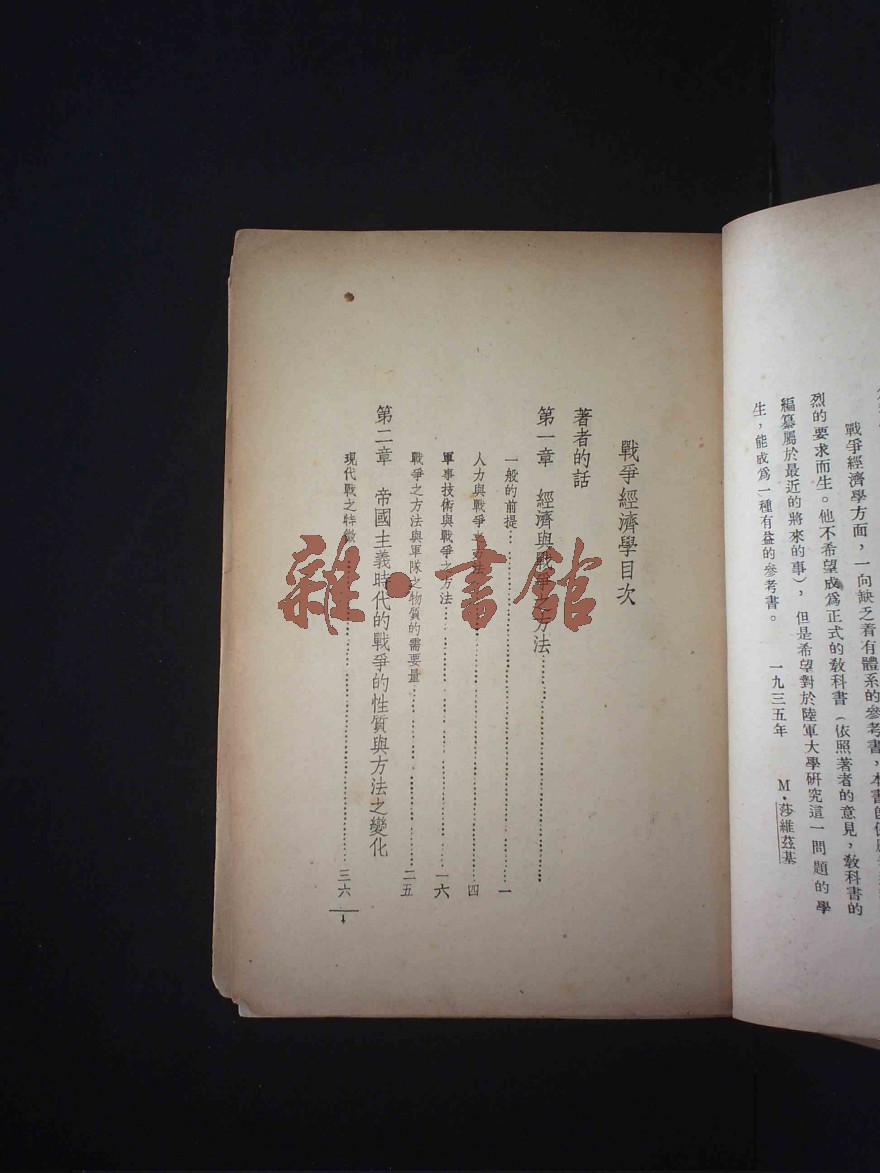 戰爭經濟學方面，一向缺乏着有體系的參考書，本書
烈的要求而生。他不希望成爲正式的敎科書（依照著者的意見，敎科書的
編纂屬於最近的將來的事），但是希望對於陸軍大學研究這一問題的學
生，能成爲一種有益的參考書。
一九三五年 M·莎維茲基
戰爭經濟學目次
著者的話
第一章 經濟與戰爭之方法
一般的前提 一
人力與戰爭之方法 四
軍事技術與戰爭之方法 一六
戰爭之方法與軍隊之物質的需要量 二五
第二章 帝國主義時代的戰爭的性質與方法之變化
現代戰之特徵 三六
雜·書館